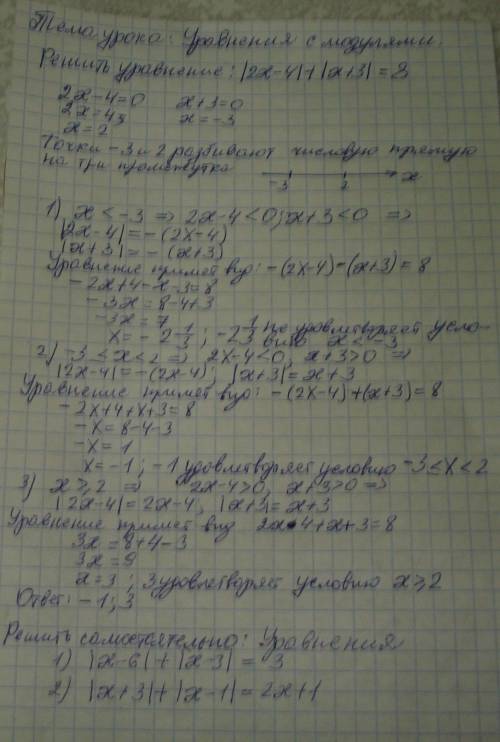 Тема урока: Уравнения с модулями.
Решить уравнение: |2x-4|+|x+3|=8
2x-4=0 x+3=0
2x=4; x=-3
x=2
Точки -3 и 2 разбивают числовую прямую
на три промежутка
-3 2 x
1) x < -3 ⇒ 2x-4<0; x+3<0 ⇒
|2x-4|=-(2x-4)
|x+3|=-(x+3)
Уравнение примет вид: -(2x-4)-(x+3)=8
-2x+4-x-3=8
-3x=8-4+3
-3x=7
x=-2 1/3; -2 1/3 не удовлетворяет усло-
вию x<-3
2) -3≤x<2 ⇒ 2x-4<0, x+3>0 ⇒
|2x-4|=-(2x-4); |x+3|=x+3
Уравнение примет вид: -(2x-4)+(x+3)=8
-2x+4+x+3=8
-x=8-4-3
-x=1
x=-1; -1 удовлетворяет условию -3≤x<2
3) x≥2 ⇒ 2x-4>0, x+3>0 ⇒
|2x-4|=2x-4, |x+3|=x+3
Уравнение примет вид 2x-4+x+3=8
3x=8+4-3
3x=9
x=3; 3 удовлетворяет условию x≥2
Ответ: -1; 3
Решить самостоятельно: Уравнения
1) |x-6|+|x-3|=3
2) |x+3|+|x-1|=2x+1